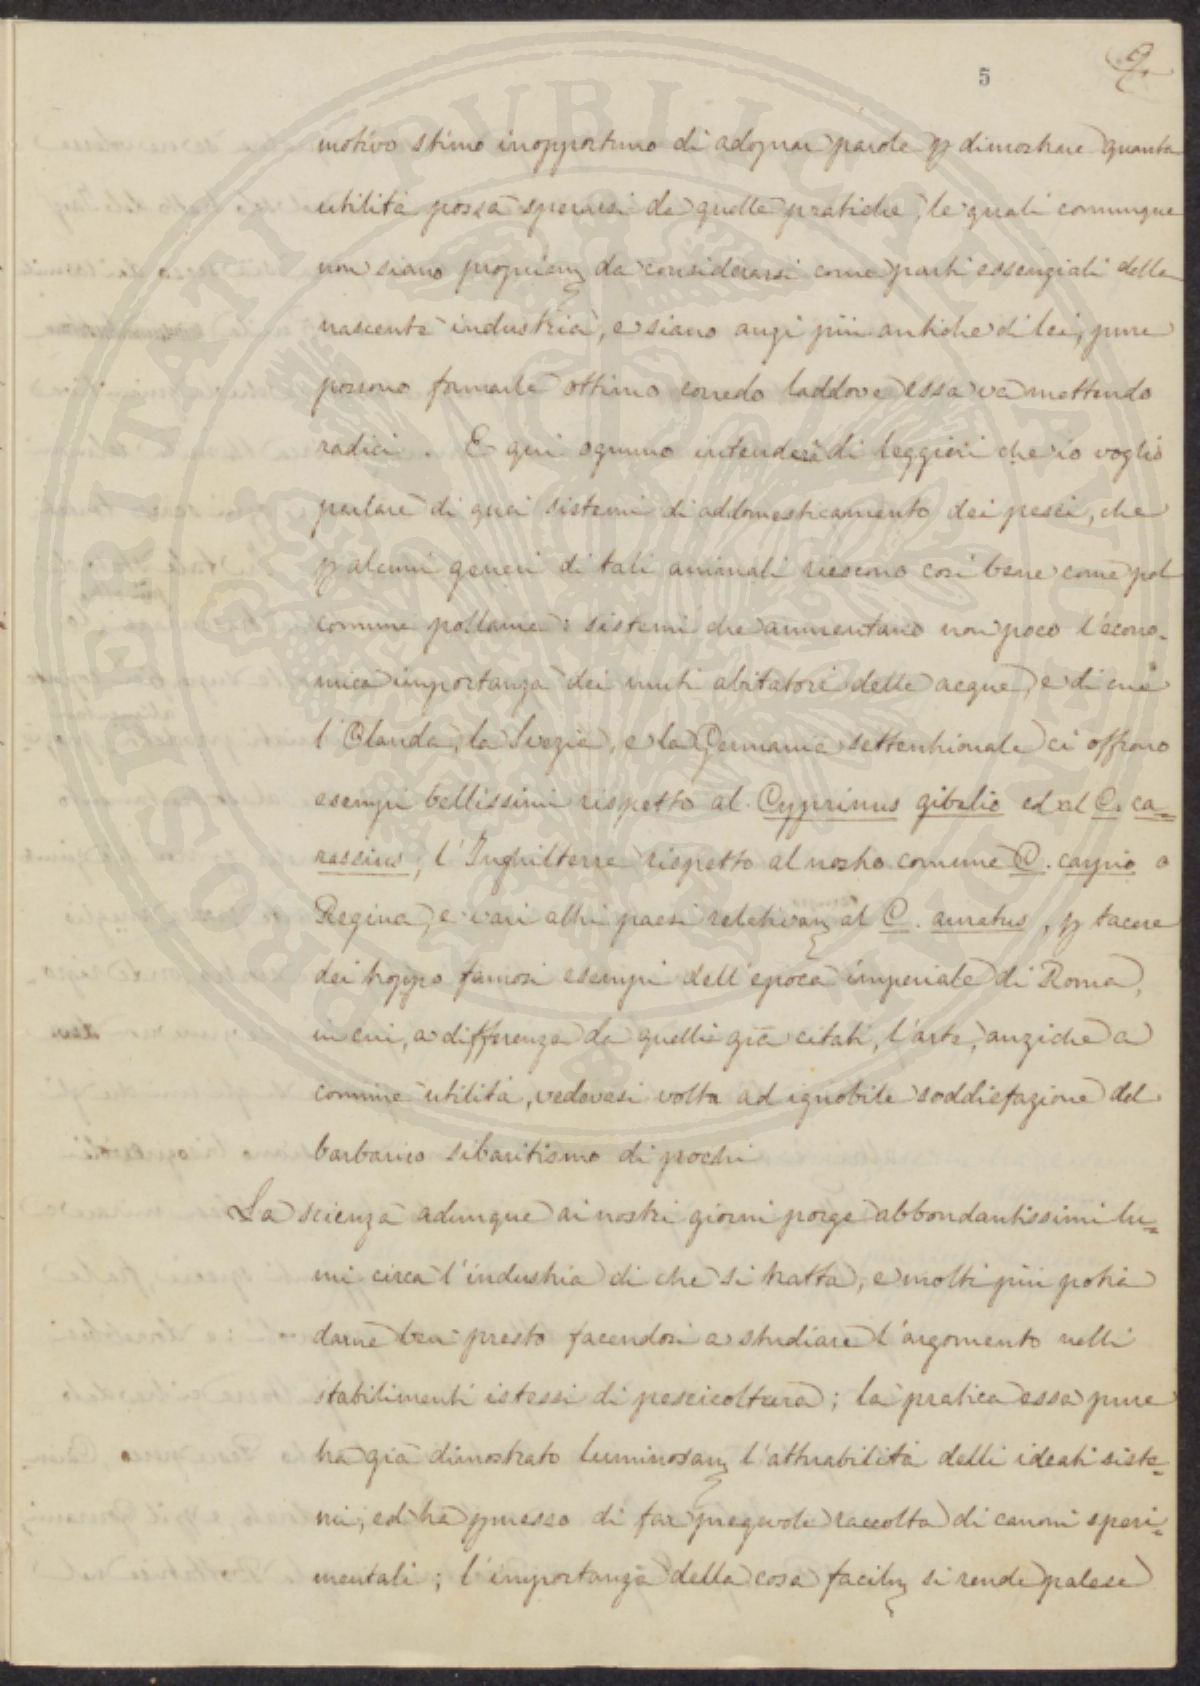 5
motivo stimo inopportuno di adoprar parole p dimostrare quanta
utilità possa sperarsi da quelle pratiche, le quali comunque
non siano propriam da considerarsi come parti essenziali della
nascente industria, e siano anzi più antiche di lei, pure
possono formarle ottimo corredo laddove essa va mettendo
radici. E qui ognuno intenderà di leggieri che io voglio
parlare di quei sistemi di addomesticamento dei pesci, che
p alcuni generi di tali animali riescono così bene come pel
comune pollame: sistemi che aumentano non poco l'econo-
mica importanza dei muti abitatori delle acque, e di cui
l'Olanda, la Svezia, e la Germania settentrionale ci offrono
esempi bellissimi rispetto al Cyprinus gibelio ed al C. ca=
rassius, l'Inghilterra rispetto al nostro comune C. carpio o
Regina, e vari altri paesi relativam al C. auratus, p tacere
dei troppo famosi esempi dell'epoca imperiale di Roma,
in cui, a differenza da quelli già citati, l'arte, anziche a
comune utilità, vedevasi volta ad ignobile soddisfazione del
barbarico sibaritismo di pochi
La scienza adunque ai nostri giorni porge abbondantissimi lu=
mi circa l'industria di che si tratta, e molti più potrà
darne ben presto facendosi a studiare l'argomento nelli
stabilimenti istessi di pescicoltura; la pratica essa pure
ha già dimostrato luminosam l'attuabilità delli ideati siste=
mi, ed ha pmesso di far pregevole raccolta di canoni speri=
mentali; l'importanza della cosa facilm si rende palese